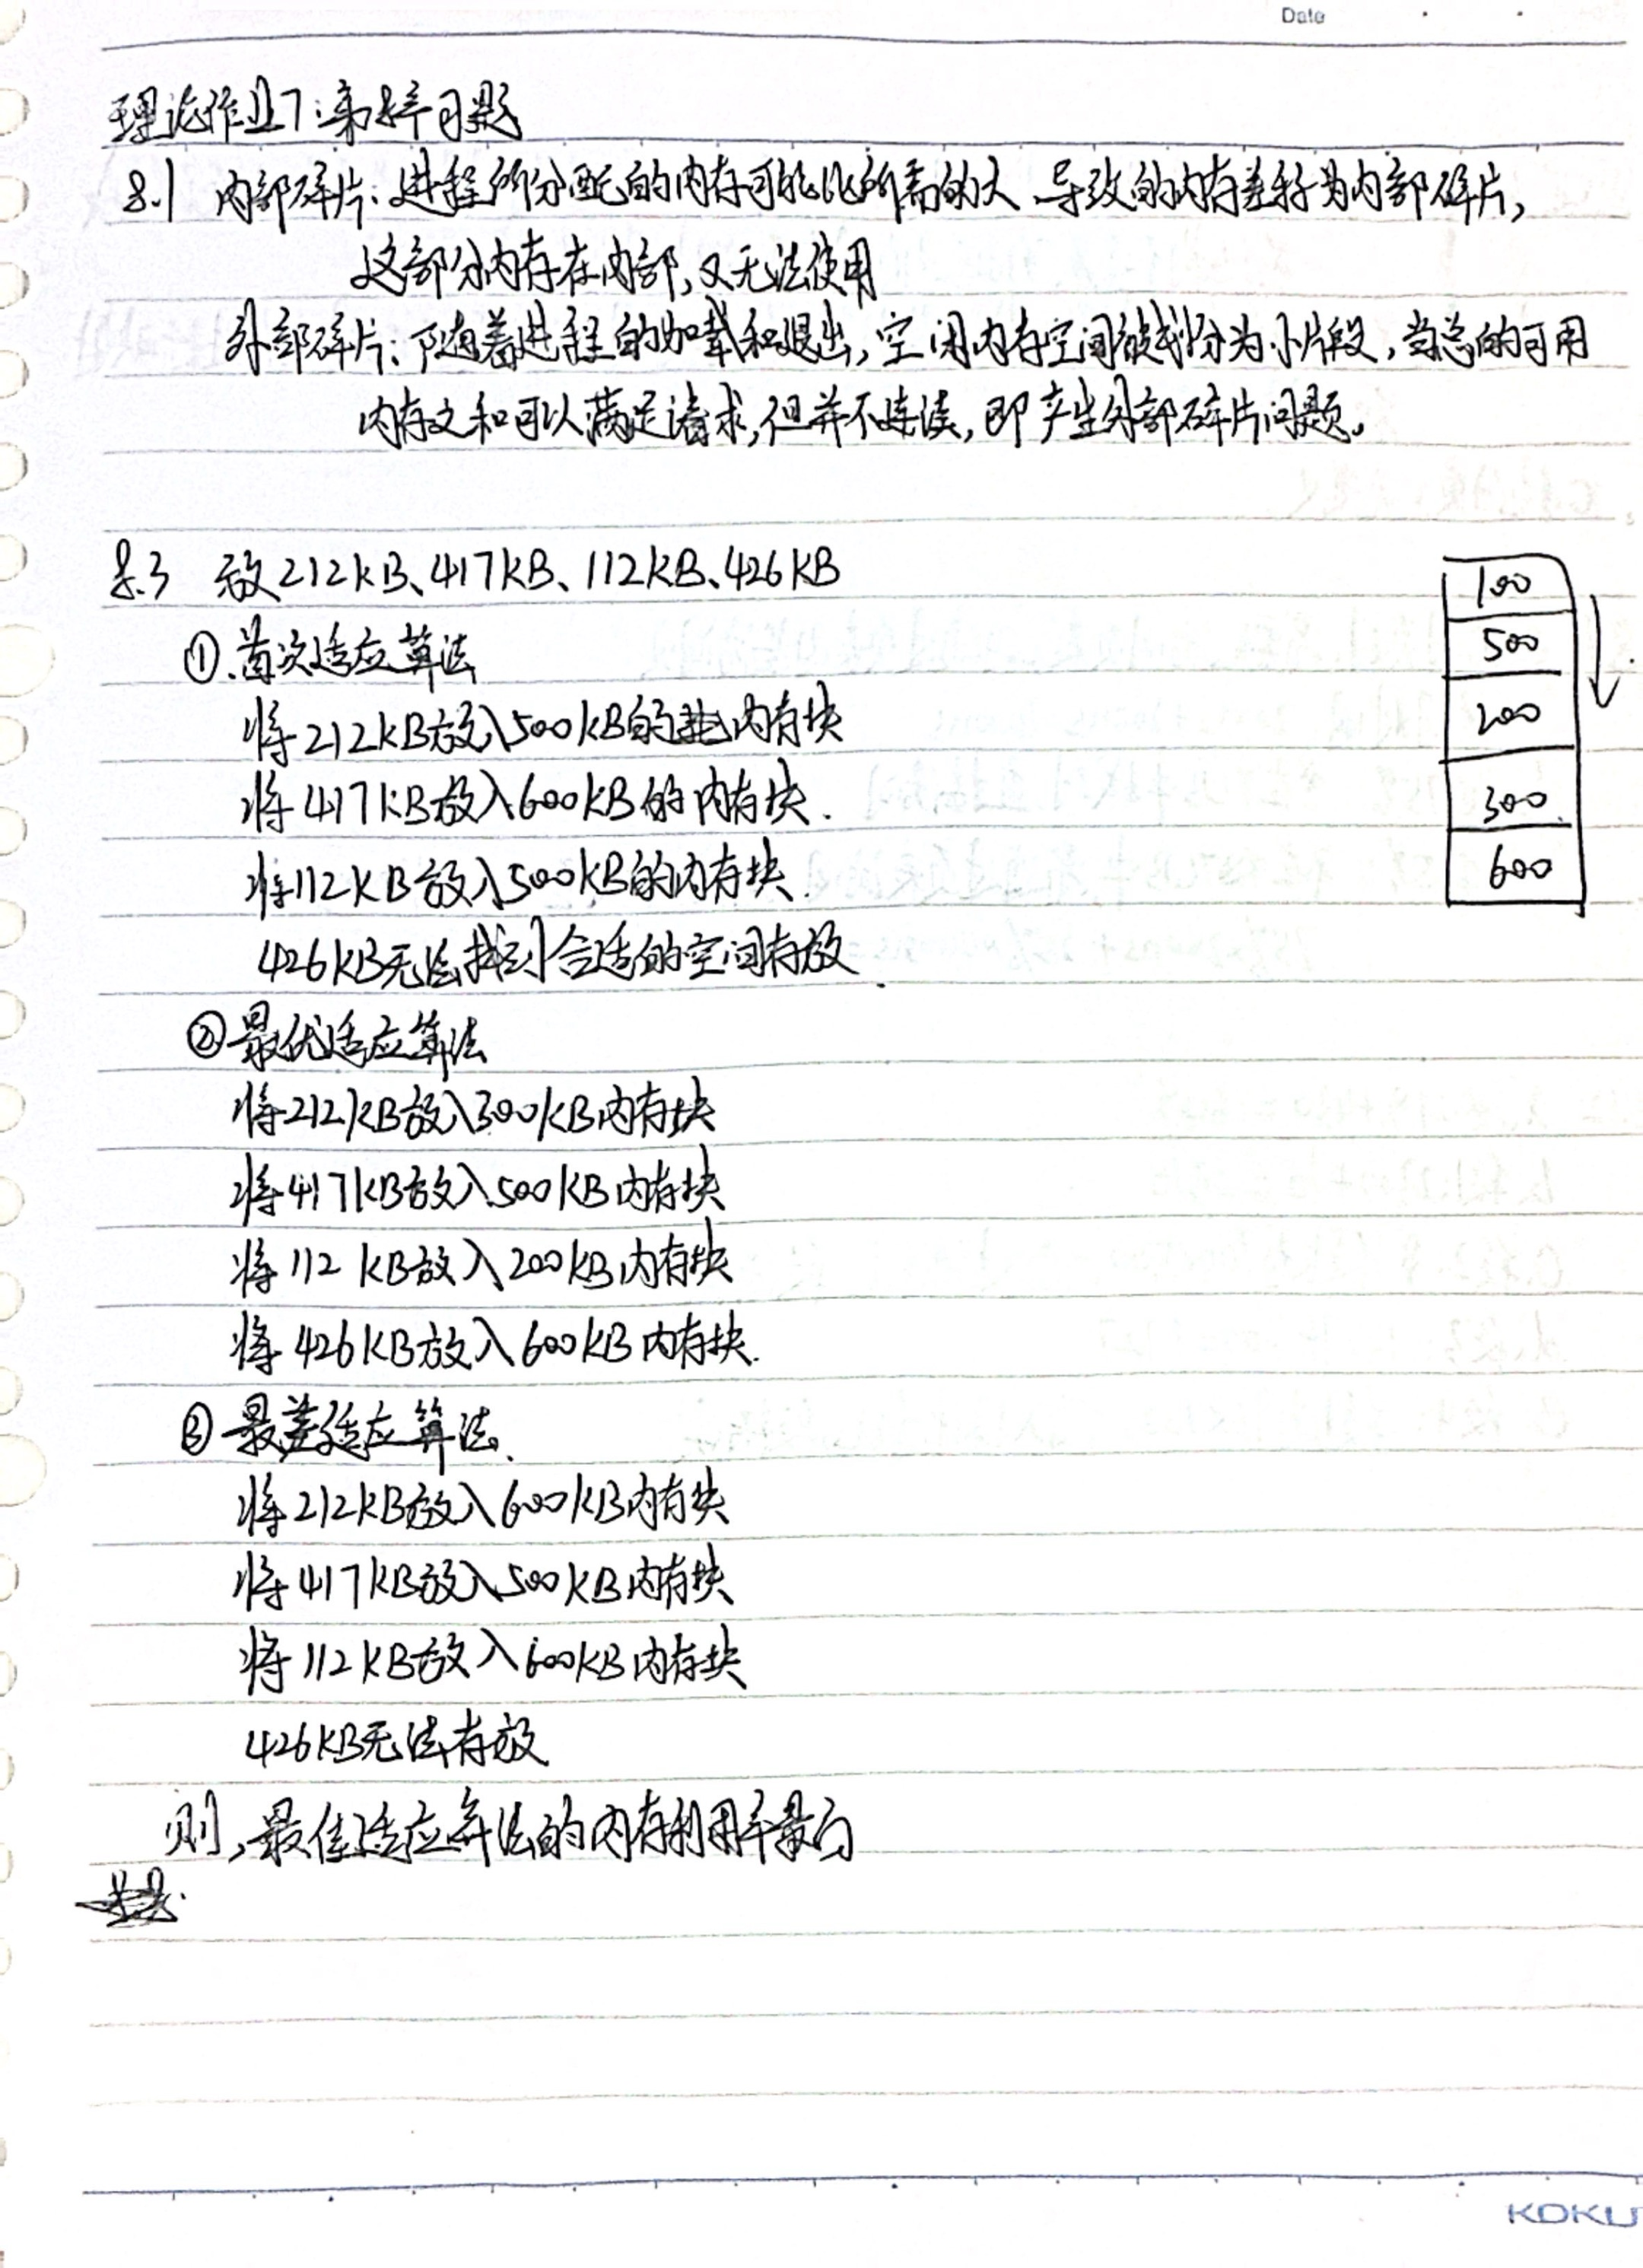 Date
理论作业7:第8章习题
8.1 内部碎片:进程所分配的内存可能比所需的大,导致的内存差称为内部碎片,
这部分内存在内部,又无法使用
外部碎片:随着进程的加载和退出,空闲内存空间被划分为小片段,当总的可用
内存之和可以满足请求,但并不连续,即产生外部碎片问题。
8.3 放212KB、417KB、112KB、426KB
①.首次适应算法
将212KB放入500KB的内存块
将417KB放入600KB的内存块.
将112KB放入500KB的内存块.
426KB无法找到合适的空间存放.
②最优适应算法
将212KB放入300KB内存块
将417KB放入500KB内存块
将112KB放入200KB内存块
将426KB放入600KB内存块.
③最差适应算法.
将212KB放入600KB内存块
将417KB放入500KB内存块
将112KB放入600KB内存块
426KB无法存放
则,最佳适应算法的内存利用率最高
100
500
200
300
600
KOKU